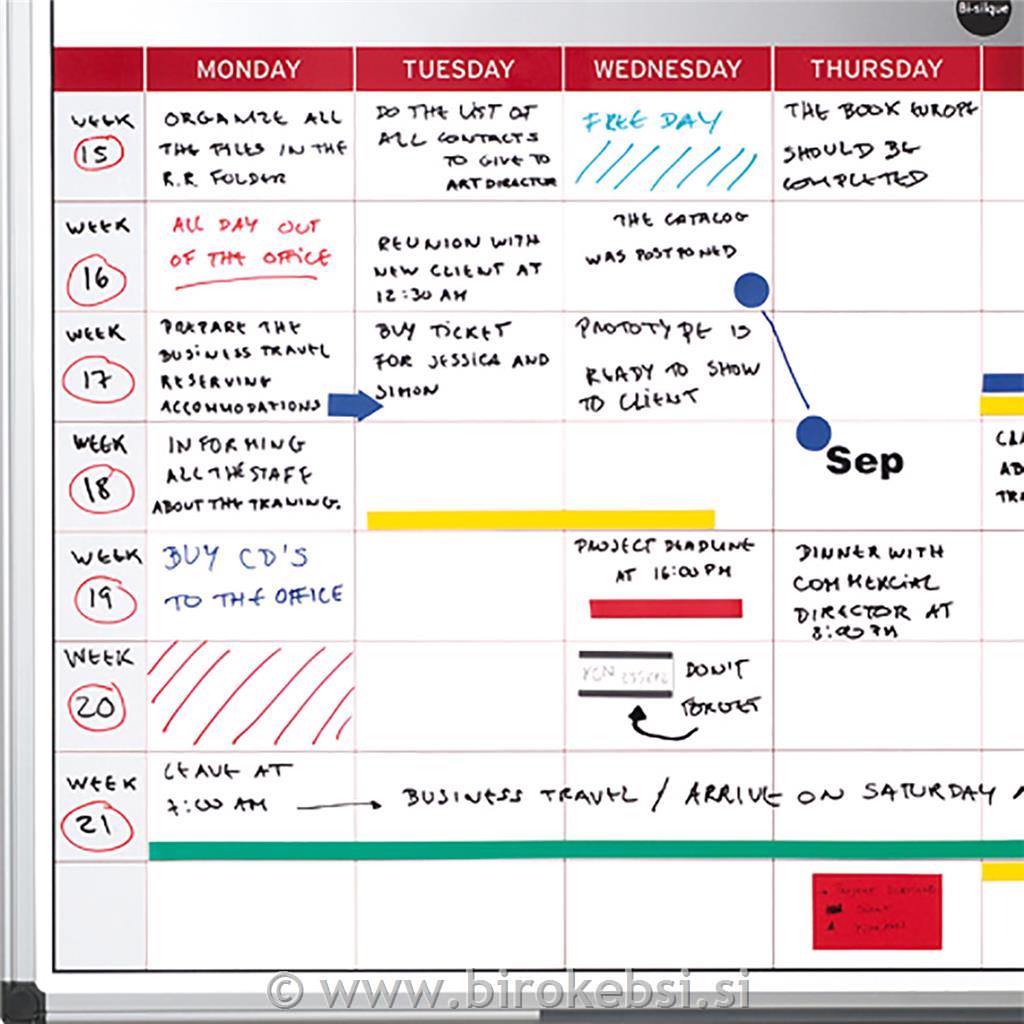 Bi-silque
MONDAY TUESDAY WEDNESDAY THURSDAY
WEEK
15
ORGANIZE ALL
THE FILES IN THE
R.R FOLDER
DO THE LIST OF
ALL CONTACTS
TO GIVE TO
ART DIRECTOR
FREE DAY
THE BOOK EUROPE
SHOULD BE
COMPLETED
WEEK
16
ALL DAY OUT
OF THE OFFICE
REUNION WITH
NEW CLIENT AT
12:30 AM
THE CATALOG
WAS POSTPONED
WEEK
17
PREPARE THE
BUSINESS TRAVEL
RESERVING
ACCOMMODATIONS
BUY TICKET
FOR JESSICA AND
SIMON
PROTOTYPE IS
READY TO SHOW
TO CLIENT
WEEK
18
INFORMING
ALL THE STAFF
ABOUT THE TRANING.
Sep
WEEK
19
BUY CD'S
TO THE OFFICE
PROJECT DEADLINE
AT 16:00 PM
DINNER WITH
COMMERCIAL
DIRECTOR AT
8:00 PM
WEEK
20
DON'T
FORGET
WEEK
21
LEAVE AT
7:00 AM
BUSINESS TRAVEL / ARRIVE ON SATURDAY
© www.birokebsi.si